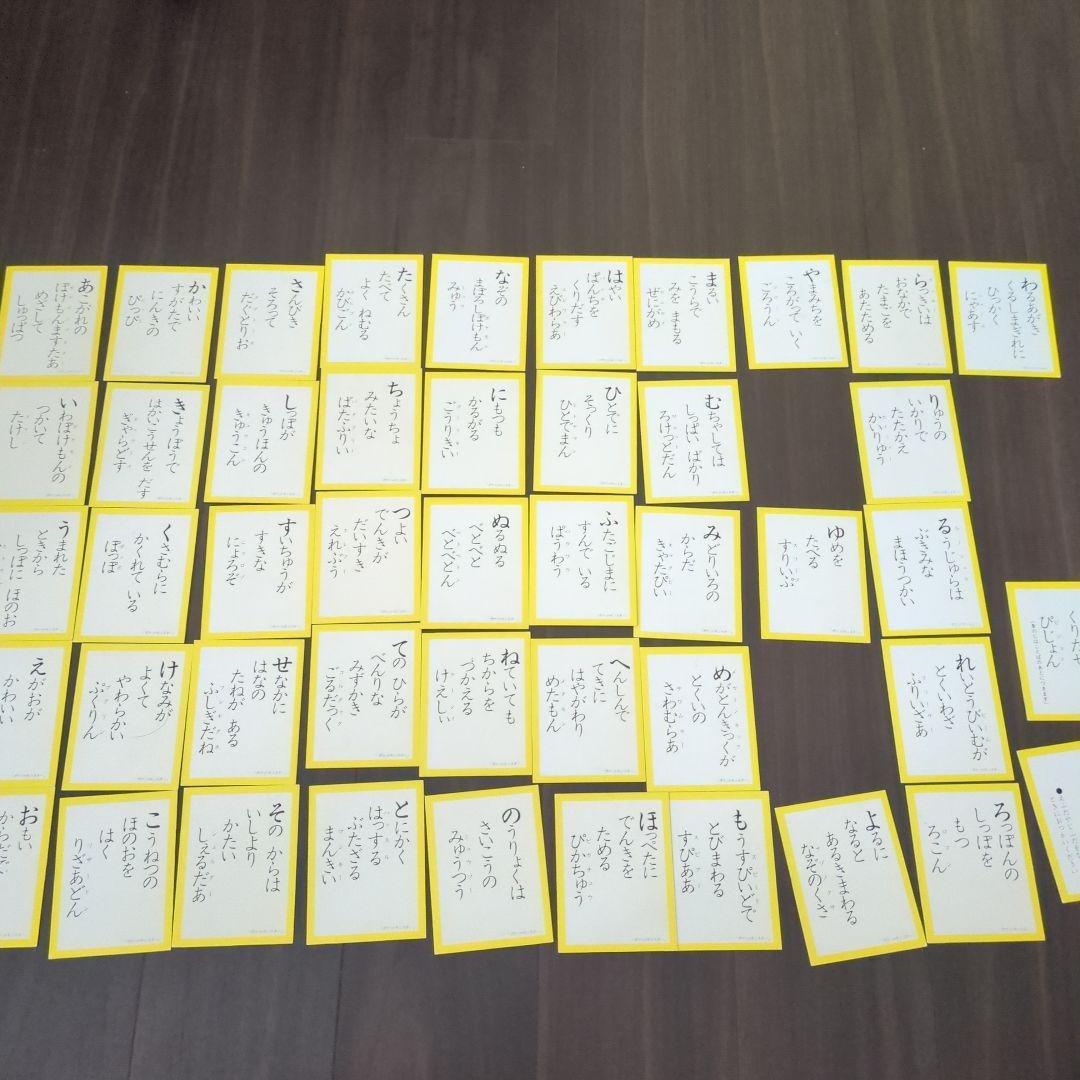 あこがれの
ぽけもんますたあ
めざして
しゅっぱつ
かわいい
すがたで
にんきの
ぴっぴ
さんびき
そろって
だぐとりお
たくさん
たべて
よく ねむる
かびごん
なぞの
まぼろしぽけもん
みゅう
はやい
ぱんちを
くりだす
えびわらあ
まるい
こうらで
みを まもる
ぜにがめ
やまみちを
ころがって いく
ごろうん
らっきいは
おなかで
たまごを
あたためる
わるあがき
くるしまぎれに
ひっかく
にゃあす
いわぽけもんの
つかいて
たけし
きょうぼうで
はかいこうせんを だす
ぎゃらどす
しっぽが
きゅうほんの
きゅうこん
ちょうちょ
みたいな
ばたふりい
にもつも
かるがる
ごうりきい
ひとでに
そっくり
ひとでまん
むちゃしては
しっぱい ばかり
ろけっとだん
りゅうの
いかりで
たたかえ
かいりゅう
うまれた
ときから
しっぽに ほのお
くさむらに
かくれて いる
ぽっぽ
すいちゅうが
すきな
にょろぞ
つよい
でんきが
だいすき
えれぶう
ぬるぬる
べとべと
べとべとん
ふたごじまに
すんで いる
ぱうわう
みどりいろの
からだ
きゃたぴい
ゆめを
たべる
すりいぷ
るうじゅらは
ぶきみな
まほうつかい
くりだせ
ぴじょん
えがおが
かわいい
けなみが
よくて
やわらかい
ぷくりん
せなかに
はなの
たねが ある
ふしぎだね
ての ひらが
べんりな
みずかき
ごるだっく
ねていても
ちからを
つかえる
けえしい
へんしんで
てきに
はやがわり
めたもん
めがとんきっくが
とくいの
さわむらあ
れいとうびいむが
とくいわざ
ふりいざあ
おもい
からだで
こうねつの
ほのおを
はく
りざあどん
その からは
いしより
かたい
しぇるだあ
とにかく
はっする
ぶたざる
まんきい
のうりょくは
さいこうの
みゅうつう
ほっぺたに
でんきを
ためる
ぴかちゅう
もうすぴいどで
とびまわる
すぴああ
よるに
なると
あるきまわる
なぞのくさ
ろっぽんの
しっぽを
もつ
ろこん